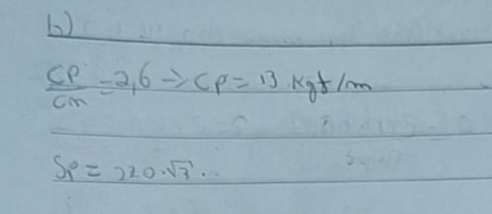 b)
CP/Cn = 2,6 → CP = 13 kgf/m
SP = 220.√3.